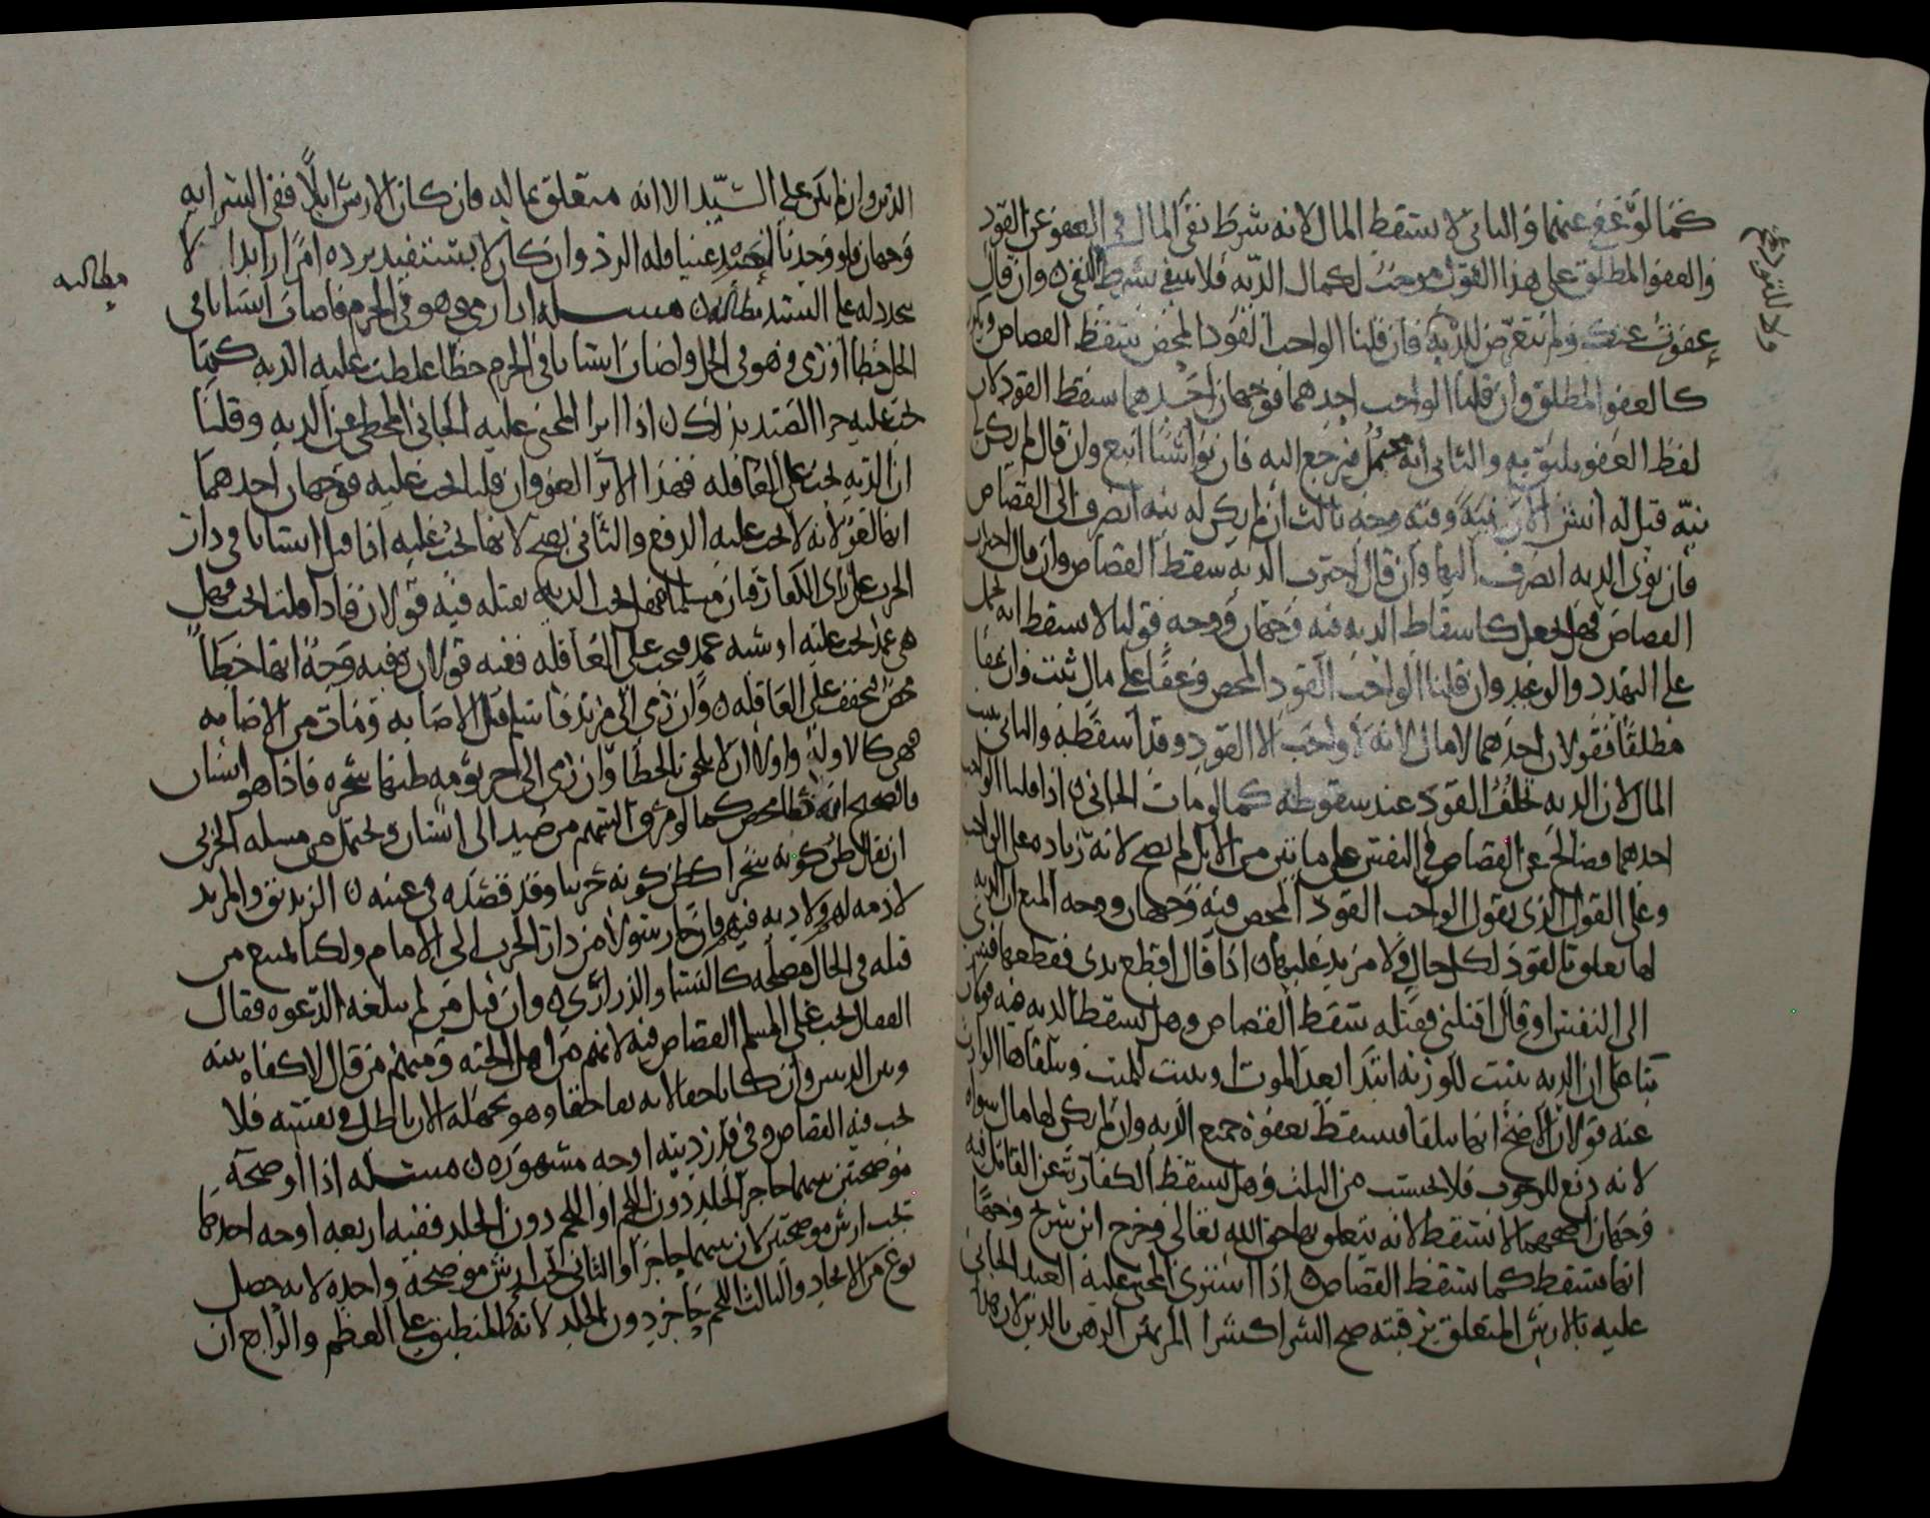 كما لو عفى عنهما والثاني لا يسقط المال لانه شرط نفي المال في العفو عن القود
والعفو المطلق على هذا القول موجب لكمال الديه فلا يبقى لشرط النفي وان قال
عفوت عنك ولم يتعرض للديه فان قلنا الواجب القود المحض سقط القصاص
كالعفو المطلق وان قلنا الواجب احدهما فوجهان احدهما سقط القود لان
لفظ العفو يليق به والثاني انه محتمل فيرجع اليه فان نوا شيا اتبع وان قال لم يكن
نيه قيل له انش الان نيه وفيه وجه ثالث ان لم يكن له نيه انصرف الى القصاص
فان نوى الديه انصرف اليها وان قال اخترت الديه سقط القصاص وان قال اخترت
القصاص فهل يجعل كاسقاط الديه فيه وجهان ووجه قولنا لا يسقط انه يحمل
على التهدد والوعيد وان قلنا الواجب القود المحض وعفا على مال ثبت وان عفا
مطلقا فقولان احدهما لا مال لانه لا واجب الا القود وقد اسقطه والثاني يجب
المال لان الديه خلف القود عند سقوطه كما لو مات الجاني اذا قلنا الواجب
احدهما فصالح عن القصاص في النفس على مايتين من الابل لم يصح لانه زياده على الواجب
وعلى القول الذى يقول الواجب القود المحض فيه وجهان ووجه المنع ان الديه
لها تعلق بالقود لكل حال ولا مزيد عليها اذا قال اقطع يدى فقطعها فسرى
الى النفس او قال اقتلني فقتله سقط القصاص وهل تسقط الديه فيه قولان
بنا على ان الديه تثبت للورثه ابتدا بعد الموت او تثبت للميت ويتلقاها الوارث
عنه قولان الاصح انها تتلقا فيسقط بعفوه جميع الديه وان لم يكن لها مال سواه
لانه دفع للوجوب فلا يحتسب من الثلث وهل تسقط الكفارة عن القاتل فيه
وجهان اصحهما لا تسقط لانه يتعلق بها حق الله تعالى وخرج ابن سريج وجها
انها تسقط كما سقط القصاص اذا اشترى المجنى عليه العبد الجاني
عليه بالارش المتعلق برقبته صح الشرا كشرا المرتهن الرهن بالدين لان هذا
ولا للتعرض
الدين وان لم يكن على السيد الا انه متعلق بماله فان كان الارش ابلا ففي الشرا به
وجهان فلو وجدنا العبد معيبا فله الرد وان كان لا يستفيد برده امرا زايدا لا
يجدد له على السيد مطالبه مسله اذا رمى وهو في الحرم فاصاب انسانا في
الحل خطا او رمى وهو في الحل واصاب انسانا في الحرم خطا غلظت عليه الديه كما
يجب عليه جزا الصيد بذلك اذا ابرا المجنى عليه الجاني المخطى عن الديه وقلنا
ان الديه تجب على العاقله فهذا الابرا لغو وان قلنا تجب عليه فوجهان احدهما
انها لغو لانه لا يجب عليه الدفع والثاني يصح لانها تجب عليه اذا قتل انسانا في دار
الحرب على زى الكفار فبان مسلما فهل تجب الديه بقتله فيه قولان فاذا قلنا تجب فهل
هي عمد تجب عليه او شبه عمد فيجب على العاقله ففيه قولان وفيه وجه انها خطا
محض تخفف على العاقله وان رمى الى مرتد فاسلم قبل الاصابه ومات من الاصابه
فهي كالاولى واولى ان لا يلحق بالخطا وان رمى الى احر يومه ظنها شجره فاذا هو انسان
فالصحيح انه خطا محض كما لو مرق السهم من صيد الى انسان ويحتمل من مسله الحربي
ان يقال ظن كونه شجرا كظن كونه حربيا وقد قصده في عينه الزنديق والمرتد
لا ذمه له ولا ديه فيه فان جا رسولا من دار الحرب الى الامام ولكنا نمنع من
قتله في الحال لمصلحه كالنسا والذراري وان قتل من لم تبلغه الدعوه فقال
القفال يجب على المسلم القصاص فيه لانهم من اهل الجنه ومنهم من قال لا كفاه بينه
وبين المسلم وان كان ناجيا لانه ما خلفا وهو بجهله الا ان الباطل في نفسه فلا
يجب فيه القصاص وفي قدر ديته اوجه مشهوره مسله اذا اوضحه
موضحتين بينهما حاجز الجلد دون اللحم او اللحم دون الجلد ففيه اربعه اوجه احدها
تجب ارش موضحتين لان بينهما حاجزا والثاني يجب ارش موضحة واحده لانه حصل
نوع من الاتحاد والثالث اللحم حاجز دون الجلد لانه المنطبق على العظم والرابع ان
مطالبه